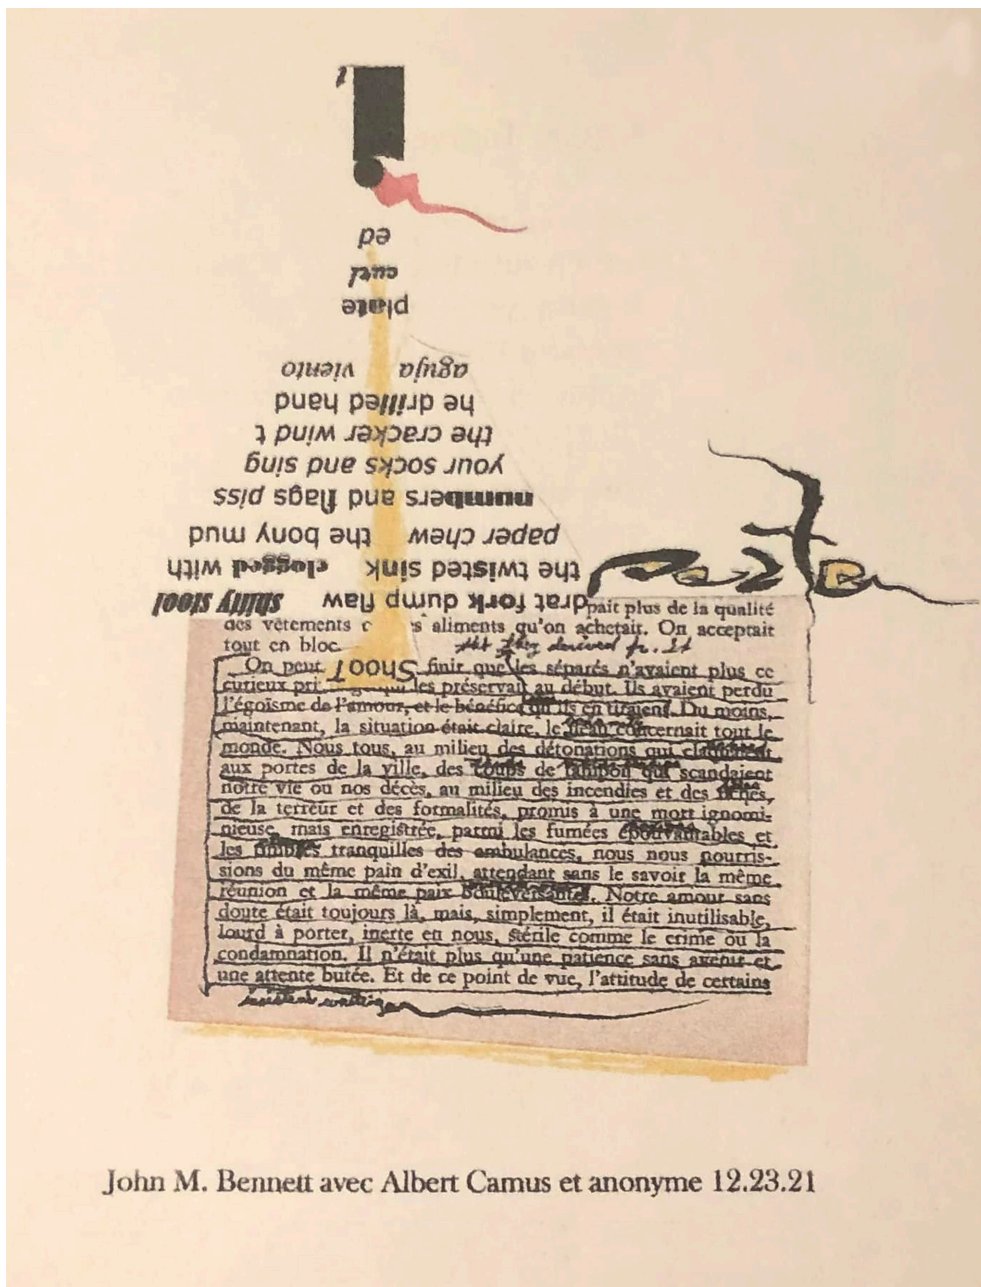 ShooT
drat fork dump flaw shitty stool
the twisted sink clogged with
paper chew the bony mud
numbers and flags piss
your socks and sing
the cracker wind t
he drilled hand
aguja viento
plate
curl
ed
t
pait plus de la qualité
des vêtements aliments qu'on achetait. On acceptait
tout en bloc.
that they derived fr. it
On peut finir que les séparés n'avaient plus ce
curieux pri les préservait au début. Ils avaient perdu
l'égoïsme de l'amour, et le bénéfice qu'ils en tiraient. Du moins,
maintenant, la situation était claire, le fléau concernait tout le
monde. Nous tous, au milieu des détonations qui claquaient
aux portes de la ville, des coups de tampon qui scandaient
notre vie ou nos décès, au milieu des incendies et des fiches,
de la terreur et des formalités, promis à une mort ignomi-
nieuse, mais enregistrée, parmi les fumées épouvantables et
les timbres tranquilles des ambulances, nous nous nourris-
sions du même pain d'exil, attendant sans le savoir la même
réunion et la même paix bouleversantes. Notre amour sans
doute était toujours là, mais, simplement, il était inutilisable,
lourd à porter, inerte en nous, stérile comme le crime ou la
condamnation. Il n'était plus qu'une patience sans avenir et
une attente butée. Et de ce point de vue, l'attitude de certains
insistent waiting
John M. Bennett avec Albert Camus et anonyme 12.23.21